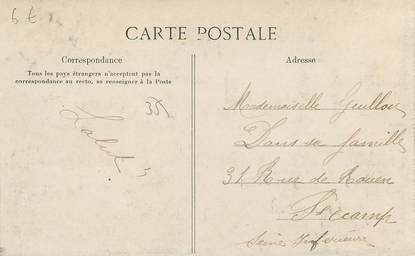 6 €
CARTE POSTALE
Correspondance
Tous les pays étrangers n'acceptent pas la
correspondance au recto, se renseigner à la Poste
35
Salut
Adresse
Mademoiselle Guillou
Dans sa famille
31 Rue de Rouen
Fécamp
Seine Inférieure